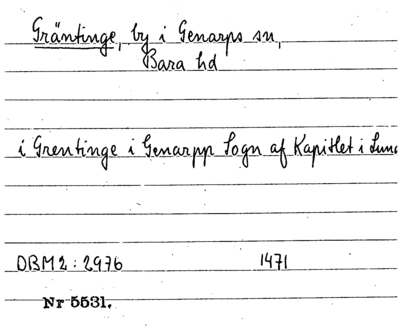 Gräntinge, by i Genarps sn,
Bara hd
i Grentinge i Genarpp Sogn af Kapitlet i Lund
DBM 2 : 2976 1471
Nr 5531.